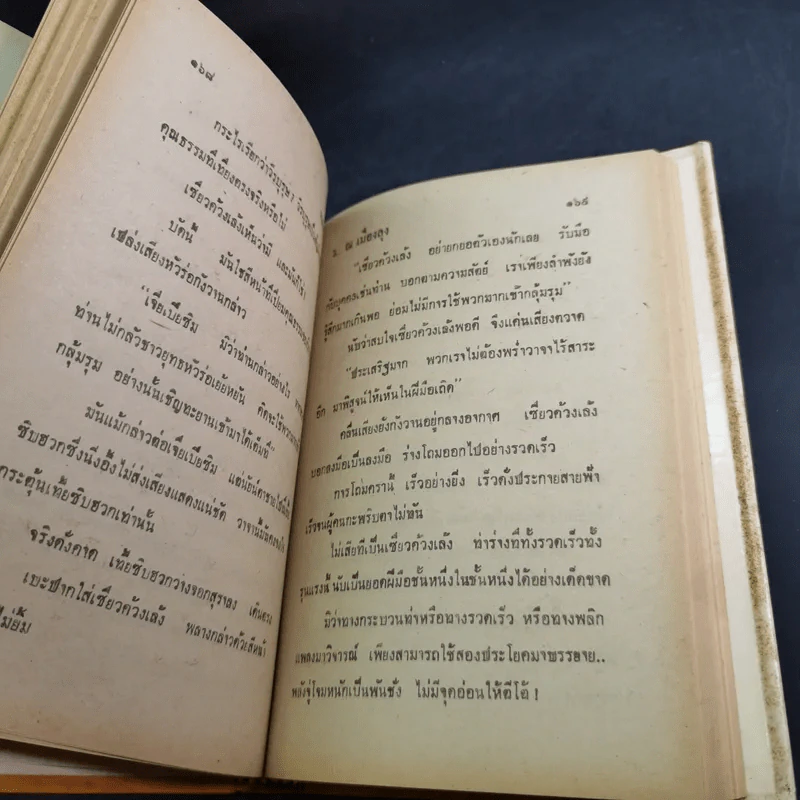 ๑๖๘
กระไรเรียกว่าวีรบุรุษ!
คุณธรรมที่เที่ยงตรงจริงหรือไม่
เซียวคว้งเล้งเห็นว่ามี
บัดนี้ มันใช้สีหน้าที่เปี่ยมคุณธรรม
เปล่งเสียงหัวร่อกังวานกล่าว
"เจี่ยเบี้ยซิม มิว่าท่านกล่าวอย่างไร
ท่านไม่กลัวชาวยุทธหัวร่อเย้ยหยัน คิดจะใช้
กลุ้มรุม อย่างนั้นเชิญทะยานเข้ามาได้เต็มที่"
มันแม้กล่าวต่อเจี่ยเบี้ยซิม แต่นัยน์ตา
ซิบฮวกซึ่งนิ่งอึ้งไม่ส่งเสียงแสดงแน่ชัด วาจานี้
กระตุ้นเท้ยซิบฮวกเท่านั้น
จริงดังคาด เท้ยซิบฮวกวางจอกสุราลง เดินตรง
เบะปากใส่เซียวคว้งเล้ง พลางกล่าวด้วยสีหน้า
ไม่ยิ้ม
๑๖๙
ณ เมืองลุง
"เซียวคว้งเล้ง อย่ายกยอตัวเองนักเลย รับมือ
กับบุคคลเช่นท่าน บอกตามความสัตย์ เราเพียงลำพังยัง
รู้สึกมากเกินพอ ย่อมไม่มีการใช้พวกมากเข้ากลุ้มรุม"
นับว่าสบใจเซียวคว้งเล้งพอดี จึงแค่นเสียงตวาด
"ประเสริฐมาก พวกเราไม่ต้องพร่ำวาจาไร้สาระ
อีก มาพิสูจน์ให้เห็นในฝีมือเถิด"
คลื่นเสียงยังกังวานอยู่กลางอากาศ เซียวคว้งเล้ง
บอกลงมือเป็นลงมือ ร่างโถมออกไปอย่างรวดเร็ว
การโถมครานี้ เร็วอย่างยิ่ง เร็วดั่งประกายสายฟ้า
เร็วจนผู้คนกะพริบตาไม่ทัน
ไม่เสียทีเป็นเซียวคว้งเล้ง ท่าร่างที่ทั้งรวดเร็วทั้ง
รุนแรงนี้ นับเป็นยอดฝีมือชั้นหนึ่งในชั้นหนึ่งได้อย่างเด็ดขาด
มิว่าทางกระบวนท่าหรือทางรวดเร็ว หรือทางพลิก
แพลงมาวิจารณ์ เพียงสามารถใช้สองประโยคมาพรรยาย..
พลังจู่โจมหนักเป็นพันชั่ง ไม่มีจุดอ่อนให้ตีโต้!